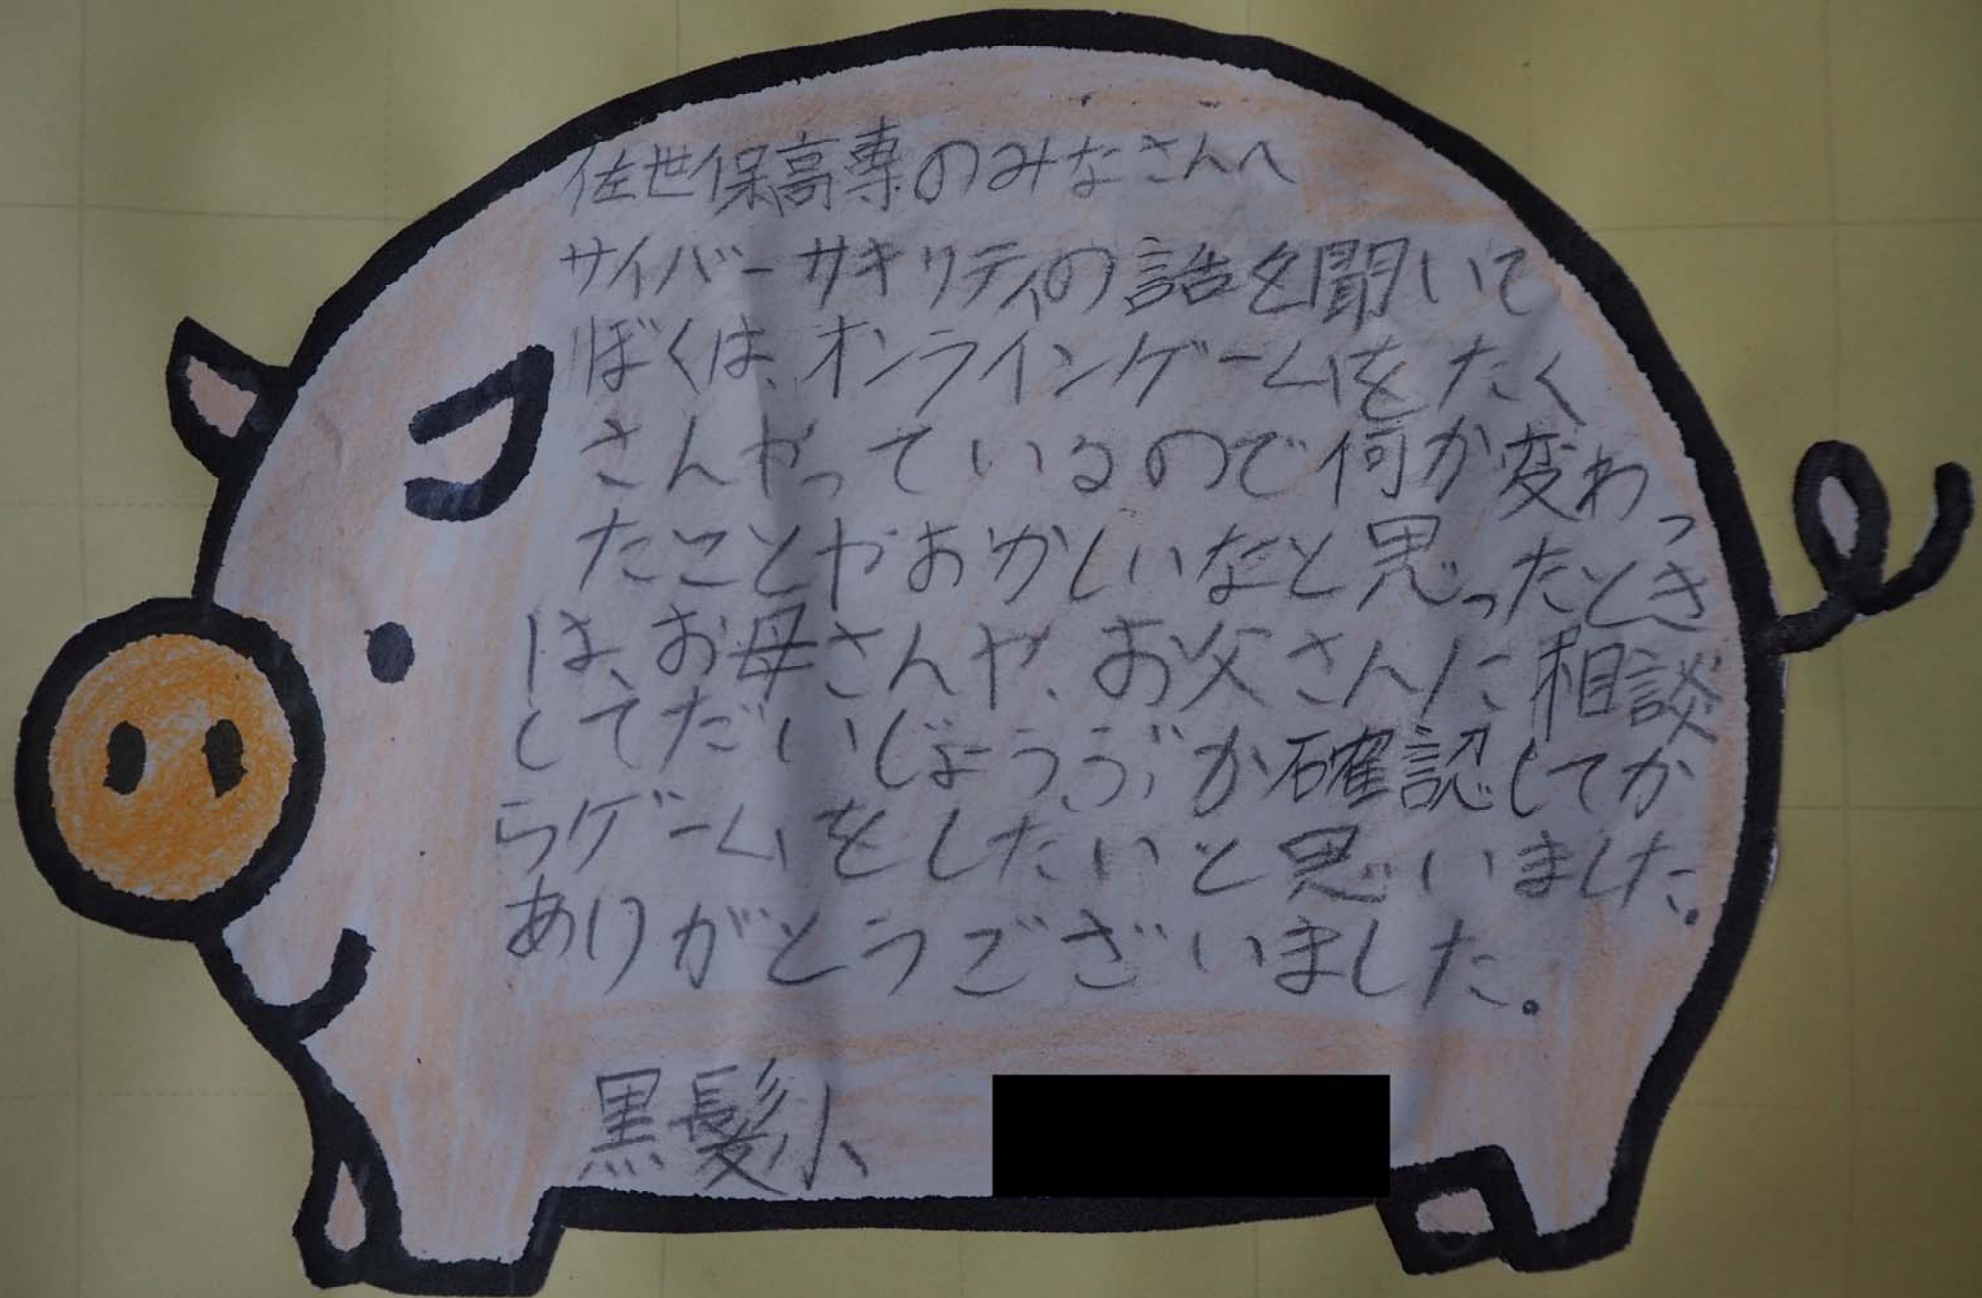 佐世保高専のみなさんへ
サイバーサキリティの話を聞いて
ぼくは、オンラインゲームをたく
さんやっているので何か変わっ
たことやおかしいなと思ったとき
は、お母さんや、お父さんに相談
してだいじょうぶか確認してか
らゲームをしたいと思いました。
ありがとうございました。
黒髪小